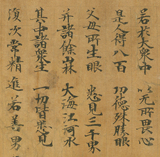 若於大衆中　以無所畏心
是人得八百　功德殊勝眼
父母所生眼　悉見三千界
并諸餘山林　大海江河水
其中諸衆生　一切皆悉見
復次常精進若善男